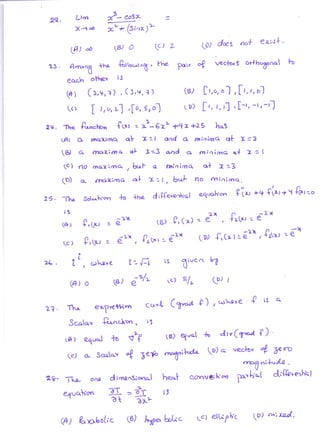 22. Lim x³ - cosx =
x→∞ x² + (sinx)²
(A) ∞ (B) 0 (C) 2 (D) does not exist.
23. Among the following, the pair of vectors orthogonal to
each other is
(A) (3,4,7), (3,4,7) (B) [1,0,0], [1,1,0]
(C) [1,0,2], [0,5,0] (D) [1,1,1], [-1,-1,-1]
24. The function f(x) = x³-6x²+9x+25 has
(A) a maxima at x=1 and a minima at x=3
(B) a maxima at x=3 and a minima at x=1
(C) no maxima, but a minima at x=3
(D) a maxima at x=1, but no minima.
25. The solution to the differential equation f''(x)+4f'(x)+4f(x)=0
is
(A) f₁(x) = e⁻²ˣ (B) f₁(x) = e²ˣ, f₂(x) = e⁻²ˣ
(C) f₁(x) = e⁻²ˣ, f₂(x) = e⁻²ˣ (D) f₁(x) = e⁻²ˣ, f₂(x) = e⁻ˣ
26. iⁱ, where i=√-1 is given by
(A) 0 (B) e^-π/2 (C) π/2 (D) 1
27. The expression curl (grad f), where f is a
Scalar function, is
(A) equal to ∇²f (B) equal to div(grad f).
(C) a Scalar of zero magnitude (D) a vector of zero
magnitude.
28. The one dimensional heat conduction partial differential
equation ∂T/∂t = ∂²T/∂x² is
(A) Parabolic (B) hyperbolic (C) elliptic (D) mixed.